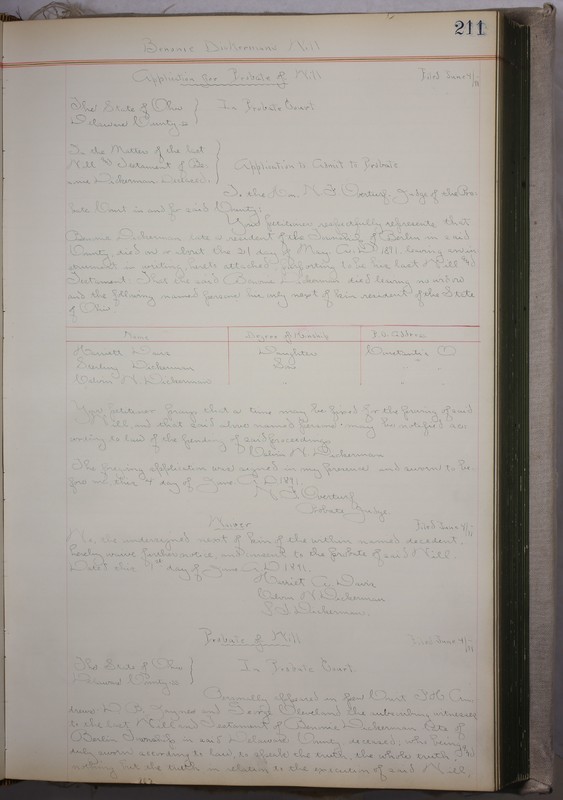 211
Bennie Dickerman's Will
Application for Probate of Will Filed June 4/91
The State of Ohio } In Probate Court
Delaware County ss
In the Matter of the last
Will and Testament of Be- } Application to Admit to Probate
nnie Dickerman Deceased.
To the Hon. N. F. Overturf, Judge of the Pro-
bate Court in and for said County:
Your petitioner respectfully represents that
Bennie Dickerman late a resident of the Township of Berlin in said
County, died on or about the 21 day of May A.D. 1891, leaving an in-
strument in writing, hereto attached purporting to be her last Will and
Testament. That the said Bennie Dickerman died leaving no widow
and the following named persons her only next of kin resident of the State
of Ohio
Name Degree of Kinship P.O. Address
Harriett Davis Daughter O
Dickerman Son
Dickerman
Your petitioner prays that a time may be fixed for the proving of said
Will and that said above named persons may be notified acc-
ording to law of the pendency of said proceedings
Dickerman
The foregoing application was signed in my presence and sworn to be-
fore me this 4 day of June A.D. 1891.
N. F. Overturf
Probate Judge.
Waiver Filed June 4/91
We, the undersigned next of kin of the within named decedent
hereby waive further notice, and consent to the probate of said Will.
Dated this day of June A.D. 1891.
Harriet A. Davis
Dickerman
Dickerman.
Probate of Will Filed June 4/91
The State of Ohio } In Probate Court
Delaware County ss
Personally appeared in open Court
and Cleveland the subscribing witnesses
to the last Will and Testament of Bennie Dickerman late of
Berlin Township in said Delaware County deceased; who being
duly sworn according to law, to speak the truth, the whole truth and
nothing but the truth in relation to the execution of said Will,